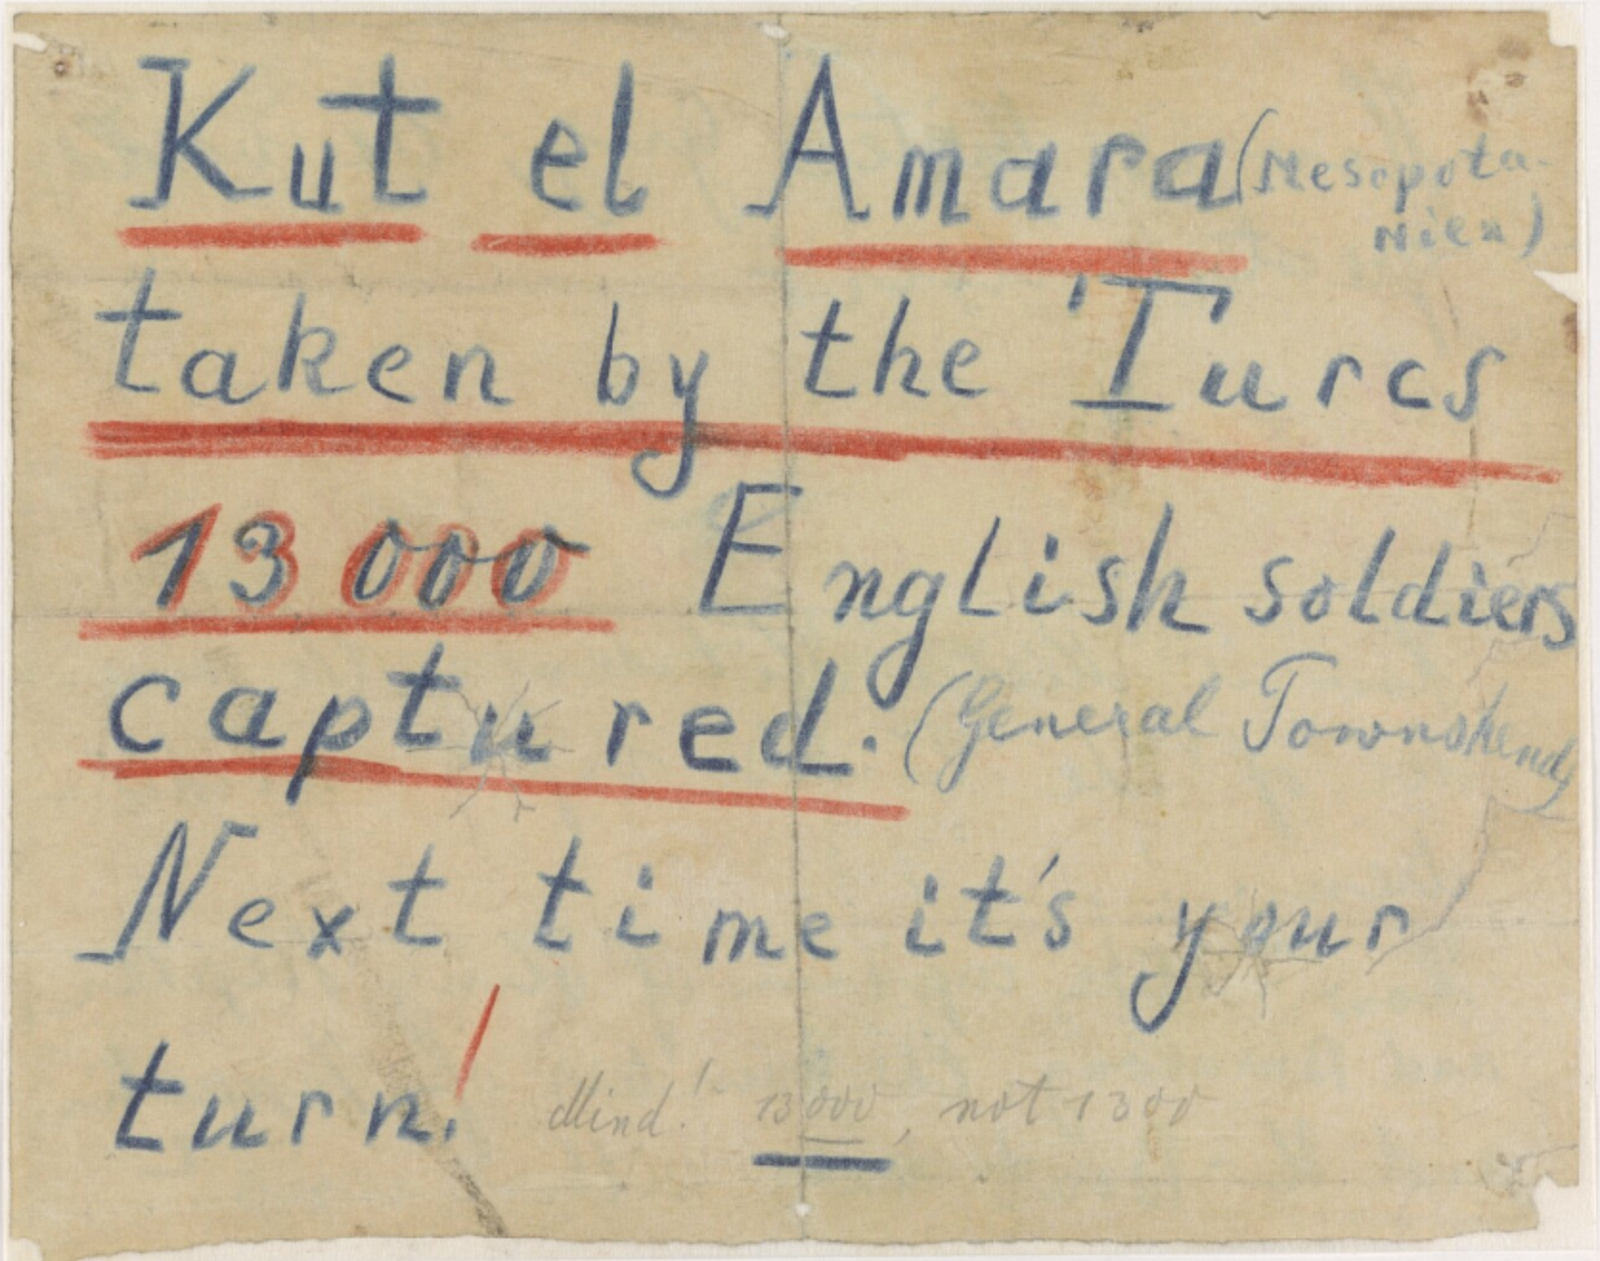 Kut el Amara (Mesopota-
nien)
taken by the Turcs
13 000 English soldiers
captured. (General Townshend)
Next time it's your
turn! Mind! 13000, not 1300